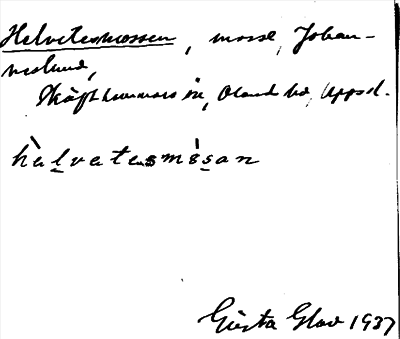 Helvetesmossen, mosse, Johan-
neslund,
Skäfthammars sn, Olands hd, Uppsl.
hàlvatesmósan
Gösta Glad 1937